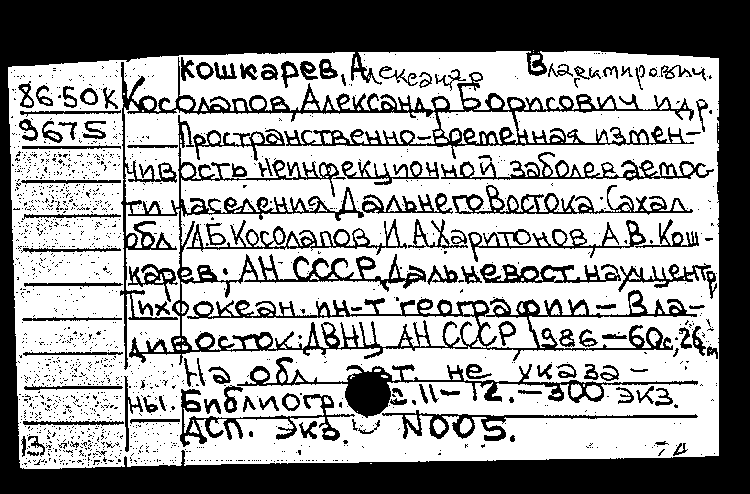 кошкарев, Александр Владимирович.
86-50К Косолапов, Александр Борисович и др.
9675 Пространственно-временная измен-
чивость неинфекционной заболеваемос-
ти населения Дальнего Востока: Сахал.
обл. /А.Б.Косолапов, И.А.Харитонов, А.В.Кош-
карев; АН СССР, Дальневост. науч. центр,
Тихоокеан. ин-т географии. - Вла-
дивосток: ДВНЦ АН СССР, 1986. - 60с.; 26см
На обл. авт. не указа-
ны. Библиогр. с.11-12. - 300 экз.
ДСП. Экз. N005.
13